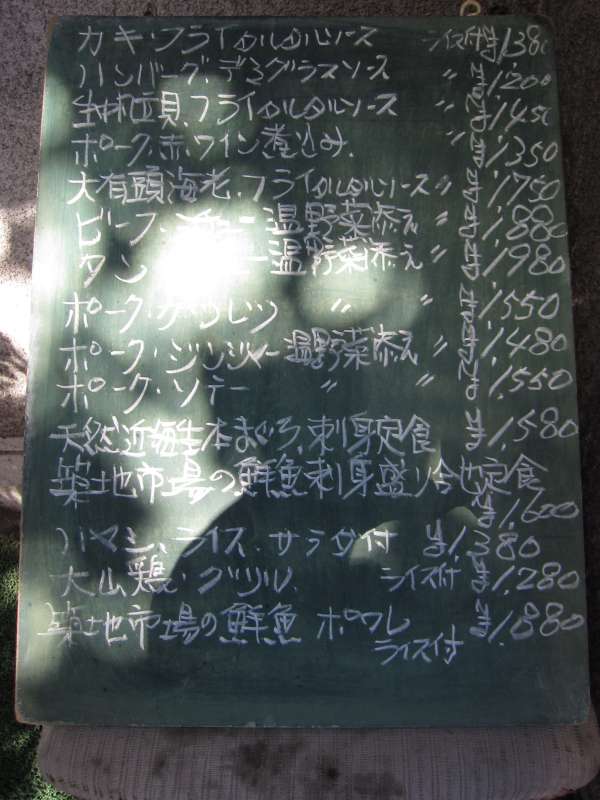 カキ・フライタルタルソース ライス付 ¥1,380
ハンバーグ・デミグラスソース 〃 ¥1,200
生帆立貝、フライタルタルソース 〃 ¥1,450
ポーク・赤ワイン煮込み 〃 ¥1,350
大有頭海老・フライタルタルソース 〃 ¥1,750
ビーフ・シチュー温野菜添え ¥1,880
タン ー温野菜添え ¥1,980
ポーク・カツレツ 〃 〃 ¥1,550
ポーク・ジンジャー温野菜添え ¥1,480
ポーク・ソテー 〃 〃 ¥1,550
天然近海生本まぐろ、刺身定食 ¥1,580
築地市場の鮮魚刺身盛り合せ定食
¥1,600
ハヤシ、ライス、サラダ付 ¥1,380
大山鶏・グリル ライス付 ¥1,280
築地市場の鮮魚 ポワレ ¥1,880
ライス付